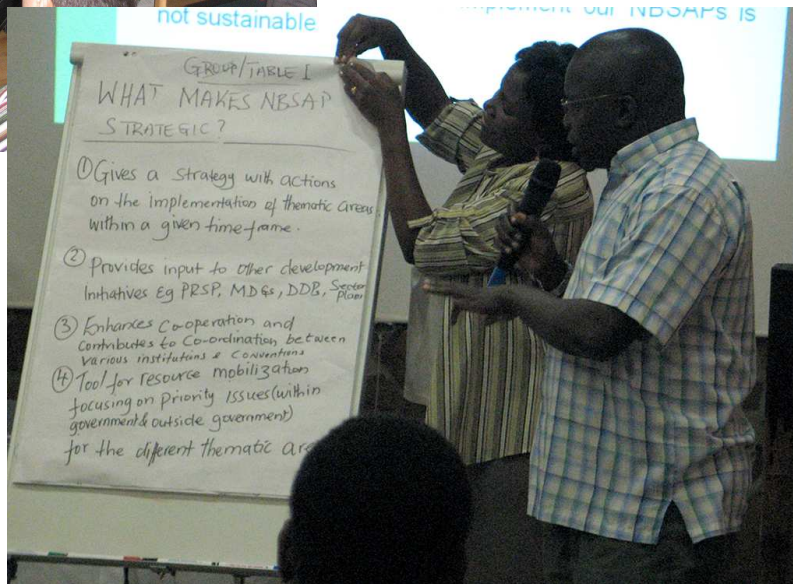 not sustainable
implement our NBSAPs is
GROUP/TABLE 1
WHAT MAKES NBSAP
STRATEGIC?
① Gives a strategy with actions
on the implementation of thematic areas
within a given time-frame.
② Provides input to other development
Initiatives Eg PRSP, MDGs, DDB, Sector
Plans
③ Enhances Co-operation and
contributes to Co-ordination between
various institutions & Conventions
④ Tool for resource mobilization
focusing on priority issues (within
government & outside government)
for the different thematic